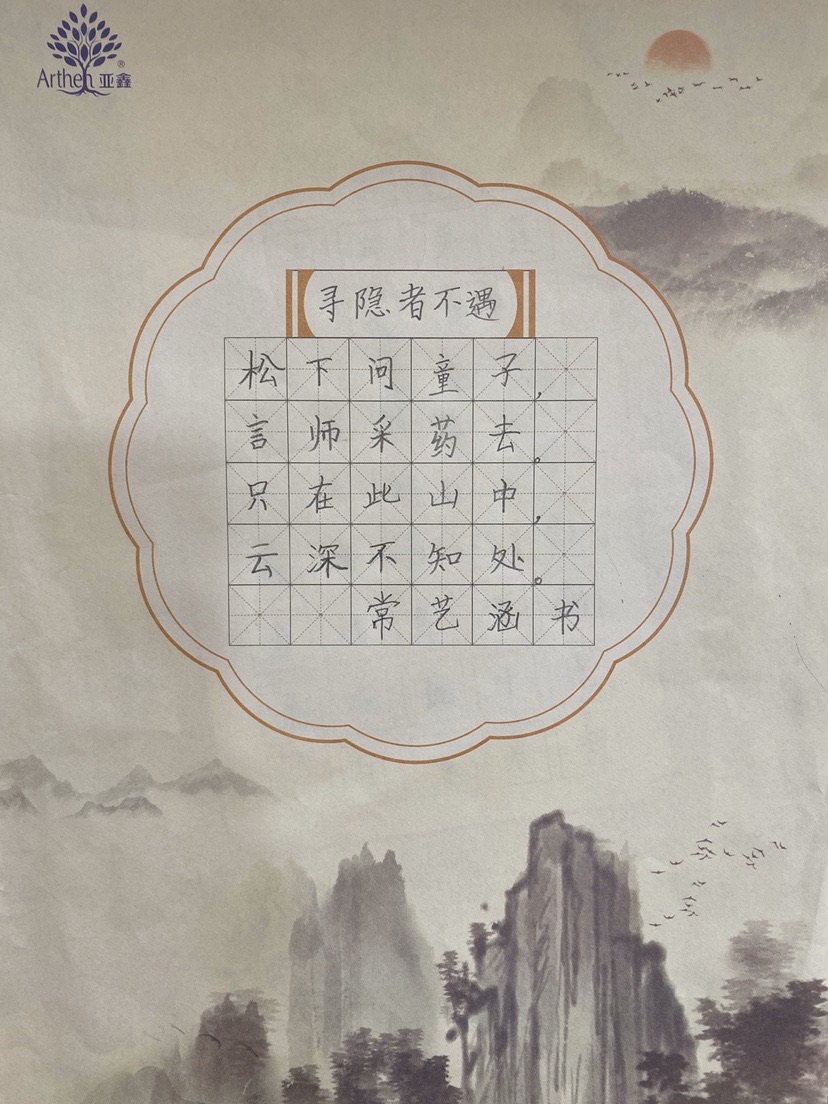 Arthen亚鑫®
寻隐者不遇
松下问童子，
言师采药去。
只在此山中，
云深不知处。
常艺涵书